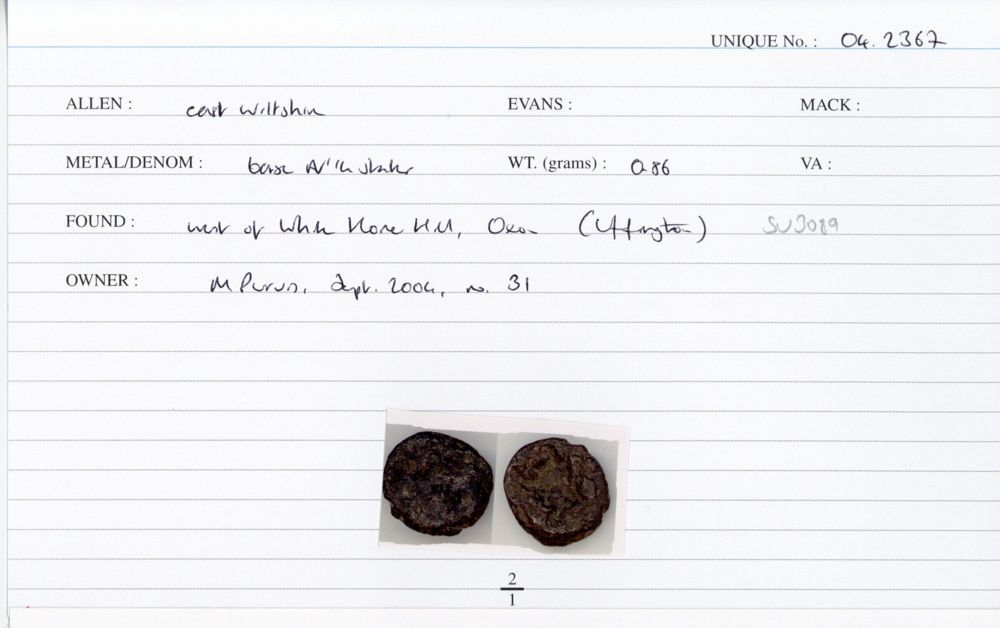 UNIQUE No. : 04. 2367
ALLEN : east wiltshire EVANS : MACK :
METAL/DENOM : base WT. (grams) : 0.86 VA :
FOUND : west of White Horse Hill, Oxon (Uffington) SU3089
OWNER : M Purvis, Sept. 2004, no. 31
2
1